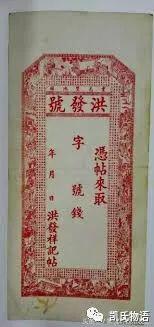 號發洪
憑帖來取
字號錢
年月日洪發祥記帖
凯氏物语